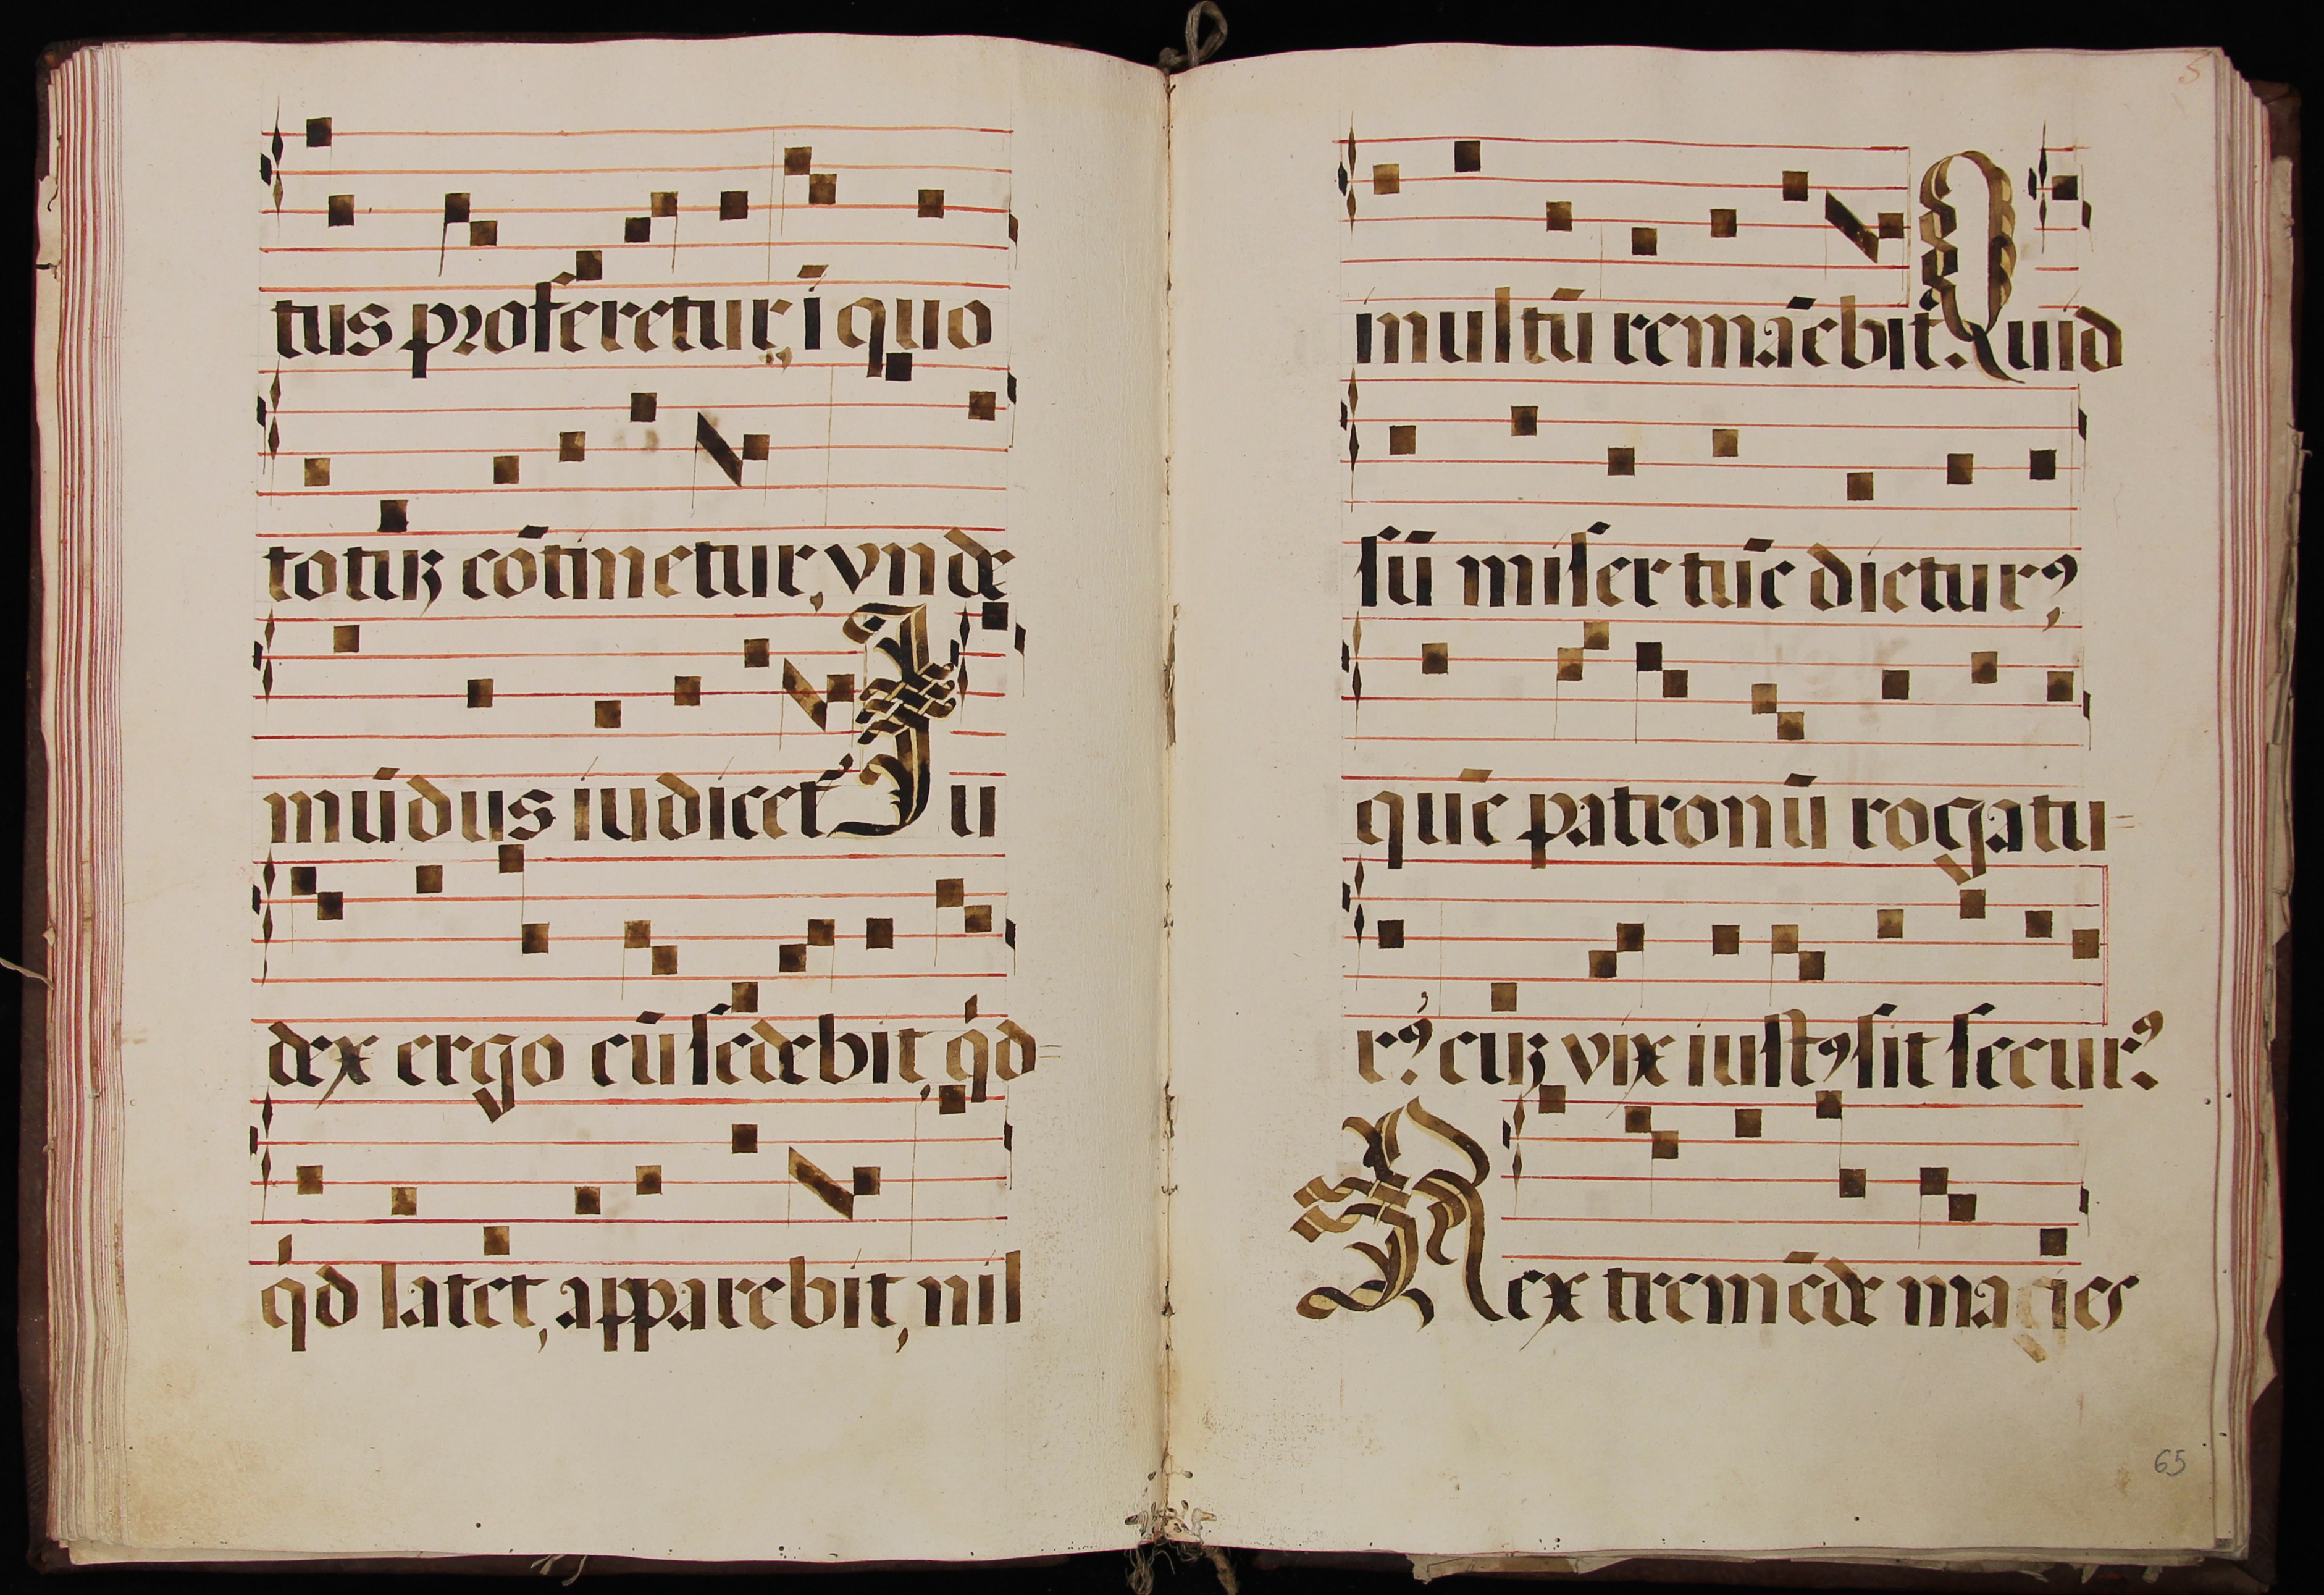 tus proferetur, ī quo
totuꝫ cōtinetur, vnde
mūdus iudicet᷑ Iu
dex ergo cū sedebit, qͥd=
qͥd latet, apparebit, nil
5
inultū remāebit. Quid
sū miser tūc dictur⁹
quē patronū rogatu=
r⁹? cuꝫ vix iust⁹ sit secur⁹.
Rex tremēde magies
65